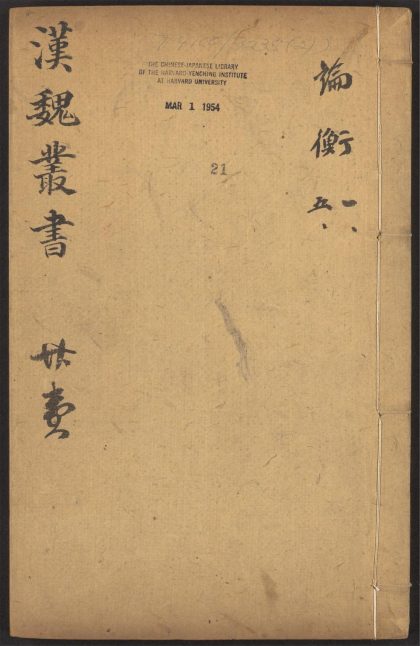 論衡
一、
五、
漢魏叢書
THE CHINESE-JAPANESE LIBRARY
OF THE HARVARD-YENCHING INSTITUTE
AT HARVARD UNIVERSITY
MAR 1 1954
21